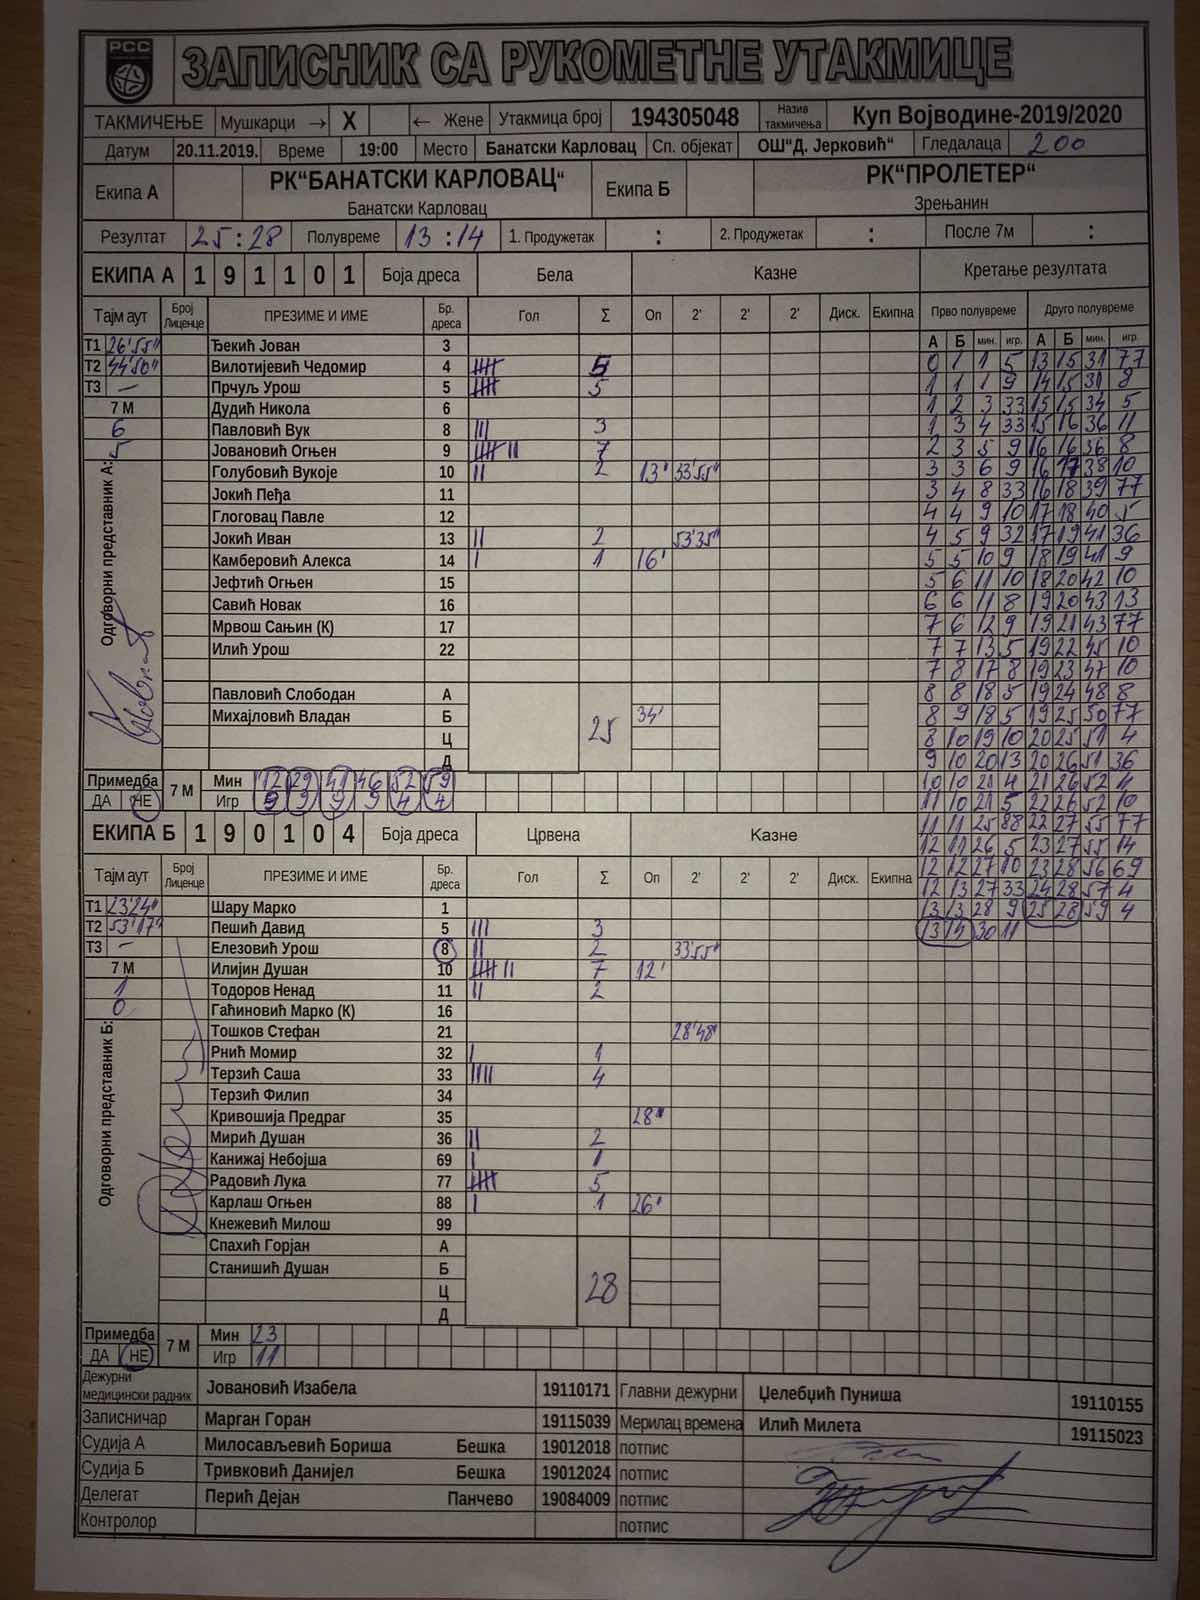 РСС
ЗАПИСНИК СА РУКОМЕТНЕ УТАКМИЦЕ
ТАКМИЧЕЊЕ Мушкарци → X ← Жене Утакмица број 194305048 Назив такмичења Куп Војводине-2019/2020
Датум 20.11.2019. Време 19:00 Место Банатски Карловац Сп. објекат ОШ“Д. Јерковић“ Гледалаца 200
Екипа А РК“БАНАТСКИ КАРЛОВАЦ“ Екипа Б РК“ПРОЛЕТЕР“
Банатски Карловац Зрењанин
Резултат 25:28 Полувреме 13:14 1. Продужетак : 2. Продужетак : После 7м :
ЕКИПА А 1 9 1 1 0 1 Боја дреса Бела Казне Кретање резултата
Тајм аут Број Лиценце ПРЕЗИМЕ И ИМЕ Бр. дреса Гол Σ Оп 2' 2' 2' Диск. Екипна Прво полувреме Друго полувреме
А Б мин. игр. А Б мин. игр.
Т1 26'55" Ђекић Јован 3 0 1 1 5 13 15 31 77
Т2 44'50" Вилотијевић Чедомир 4 5 1 1 1 9 14 15 31 8
Т3 – Прчуљ Урош 5 5 1 2 3 33 15 15 34 5
7 М Дудић Никола 6 1 3 4 33 15 16 36 11
6 Павловић Вук 8 III 3 2 3 5 9 16 16 36 8
5 Јовановић Огњен 9 7 3 3 6 9 16 17 38 10
Одговорни представник А:
Голубовић Вукоје 10 II 2 13' 33'55" 3 4 8 33 16 18 39 77
Јокић Пеђа 11 4 4 9 10 17 18 40 5
Глоговац Павле 12 4 5 9 32 17 19 41 36
Јокић Иван 13 II 2 53'35" 5 5 10 9 18 19 41 9
Камберовић Алекса 14 I 1 16' 5 6 11 10 18 20 42 10
Јефтић Огњен 15 6 6 11 8 19 20 43 13
Савић Новак 16 7 6 12 9 19 21 43 77
Мрвош Сањин (К) 17 7 7 13 5 19 22 45 10
Илић Урош 22 7 8 17 8 19 23 47 10
8 8 18 5 19 24 48 8
Павловић Слободан А 8 9 18 5 19 25 50 77
Михајловић Владан Б 25 34' 8 10 19 10 20 25 51 4
Ц 9 10 20 13 20 26 51 36
Д 10 10 21 4 21 26 52 4
Примедба 7 М Мин 12 29 41 46 52 59 11 10 21 5 22 26 52 10
ДА НЕ Игр 9 9 9 9 4 4 11 11 25 88 22 27 55 77
ЕКИПА Б 1 9 0 1 0 4 Боја дреса Црвена Казне 12 11 26 5 23 27 55 14
12 12 27 10 23 28 56 69
12 13 27 33 24 28 57 4
13 13 28 9 25 28 59 4
13 14 30 11
Тајм аут Број Лиценце ПРЕЗИМЕ И ИМЕ Бр. дреса Гол Σ Оп 2' 2' 2' Диск. Екипна
Т1 23'24" Шару Марко 1
Т2 53'17" Пешић Давид 5 III 3
Т3 – Елезовић Урош 8 II 2 33'55"
7 М Илијин Душан 10 7 12'
1 Тодоров Ненад 11 II 2
0 Гаћиновић Марко (К) 16
Одговорни представник Б:
Тошков Стефан 21 28'48"
Рнић Момир 32 I 1
Терзић Саша 33 IIII 4
Терзић Филип 34
Кривошија Предраг 35 28'
Мирић Душан 36 II 2
Канижај Небојша 69 I 1
Радовић Лука 77 5
Карлаш Огњен 88 I 1 26'
Кнежевић Милош 99
Спахић Горјан А
Станишић Душан Б 28
Ц
Д
Примедба 7 М Мин 23
ДА НЕ Игр 11
Дежурни медицински радник Јовановић Изабела 19110171 Главни дежурни Џелебџић Пуниша 19110155
Записничар Марган Горан 19115039 Мерилац времена Илић Милета 19115023
Судија А Милосављевић Бориша Бешка 19012018 потпис
Судија Б Тривковић Данијел Бешка 19012024 потпис
Делегат Перић Дејан Панчево 19084009 потпис
Контролор потпис